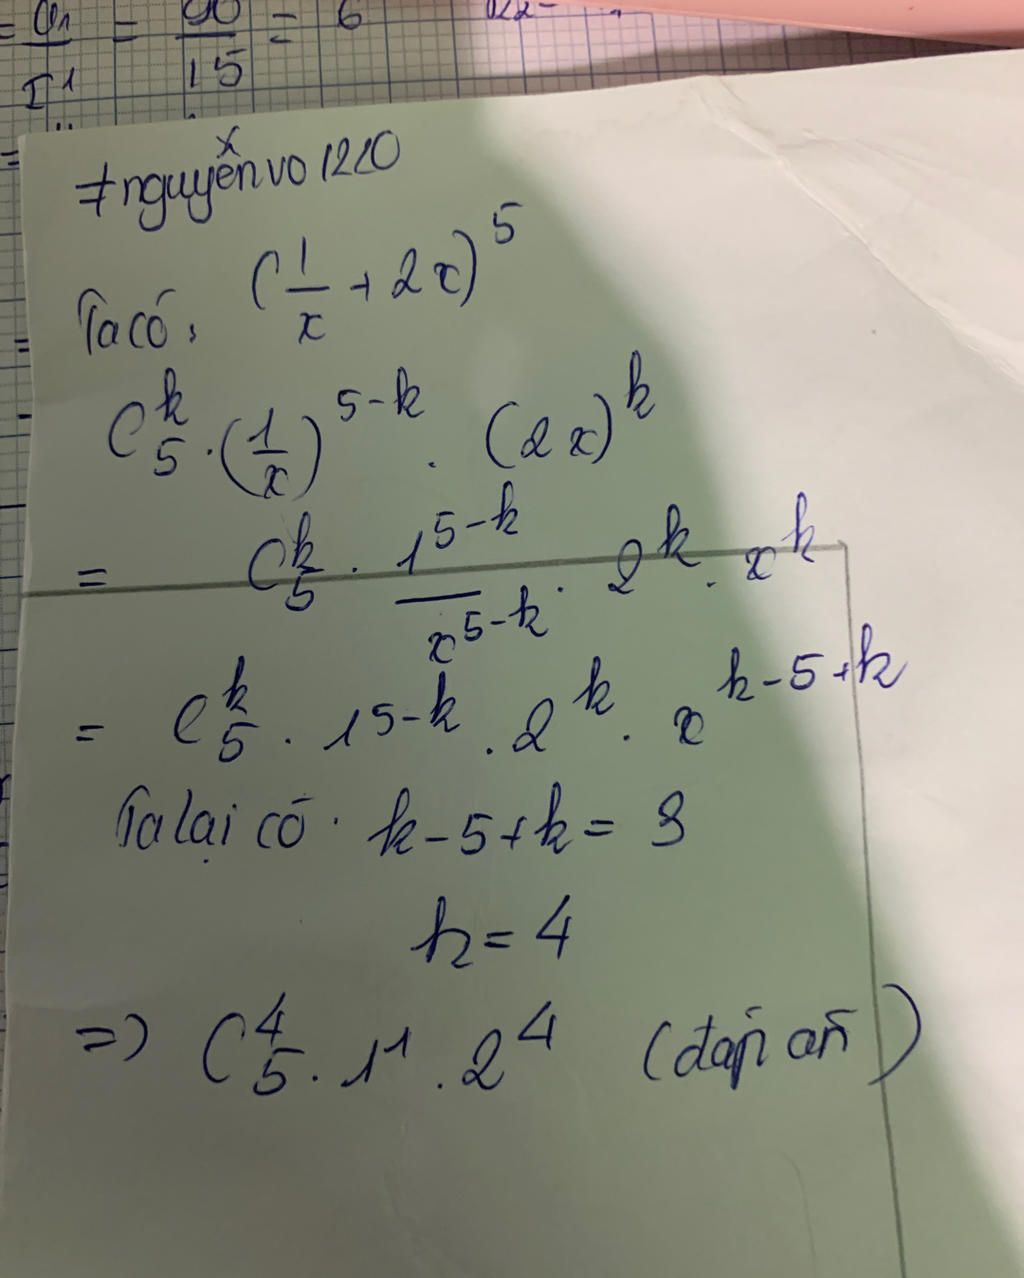 = = 6
I¹ 15
#nguyễnvo1220
Ta có, (1/x + 2x)^5
C_5^k . (1/x)^{5-k} . (2x)^k
= C_5^k . 1^{5-k}/x^{5-k} . 2^k . x^k
= C_5^k . 1^{5-k} . 2^k . x^{k-5+k}
Ta lại có . k-5+k = 3
k = 4
=> C_5^4 . 1^1 . 2^4 (đáp án)